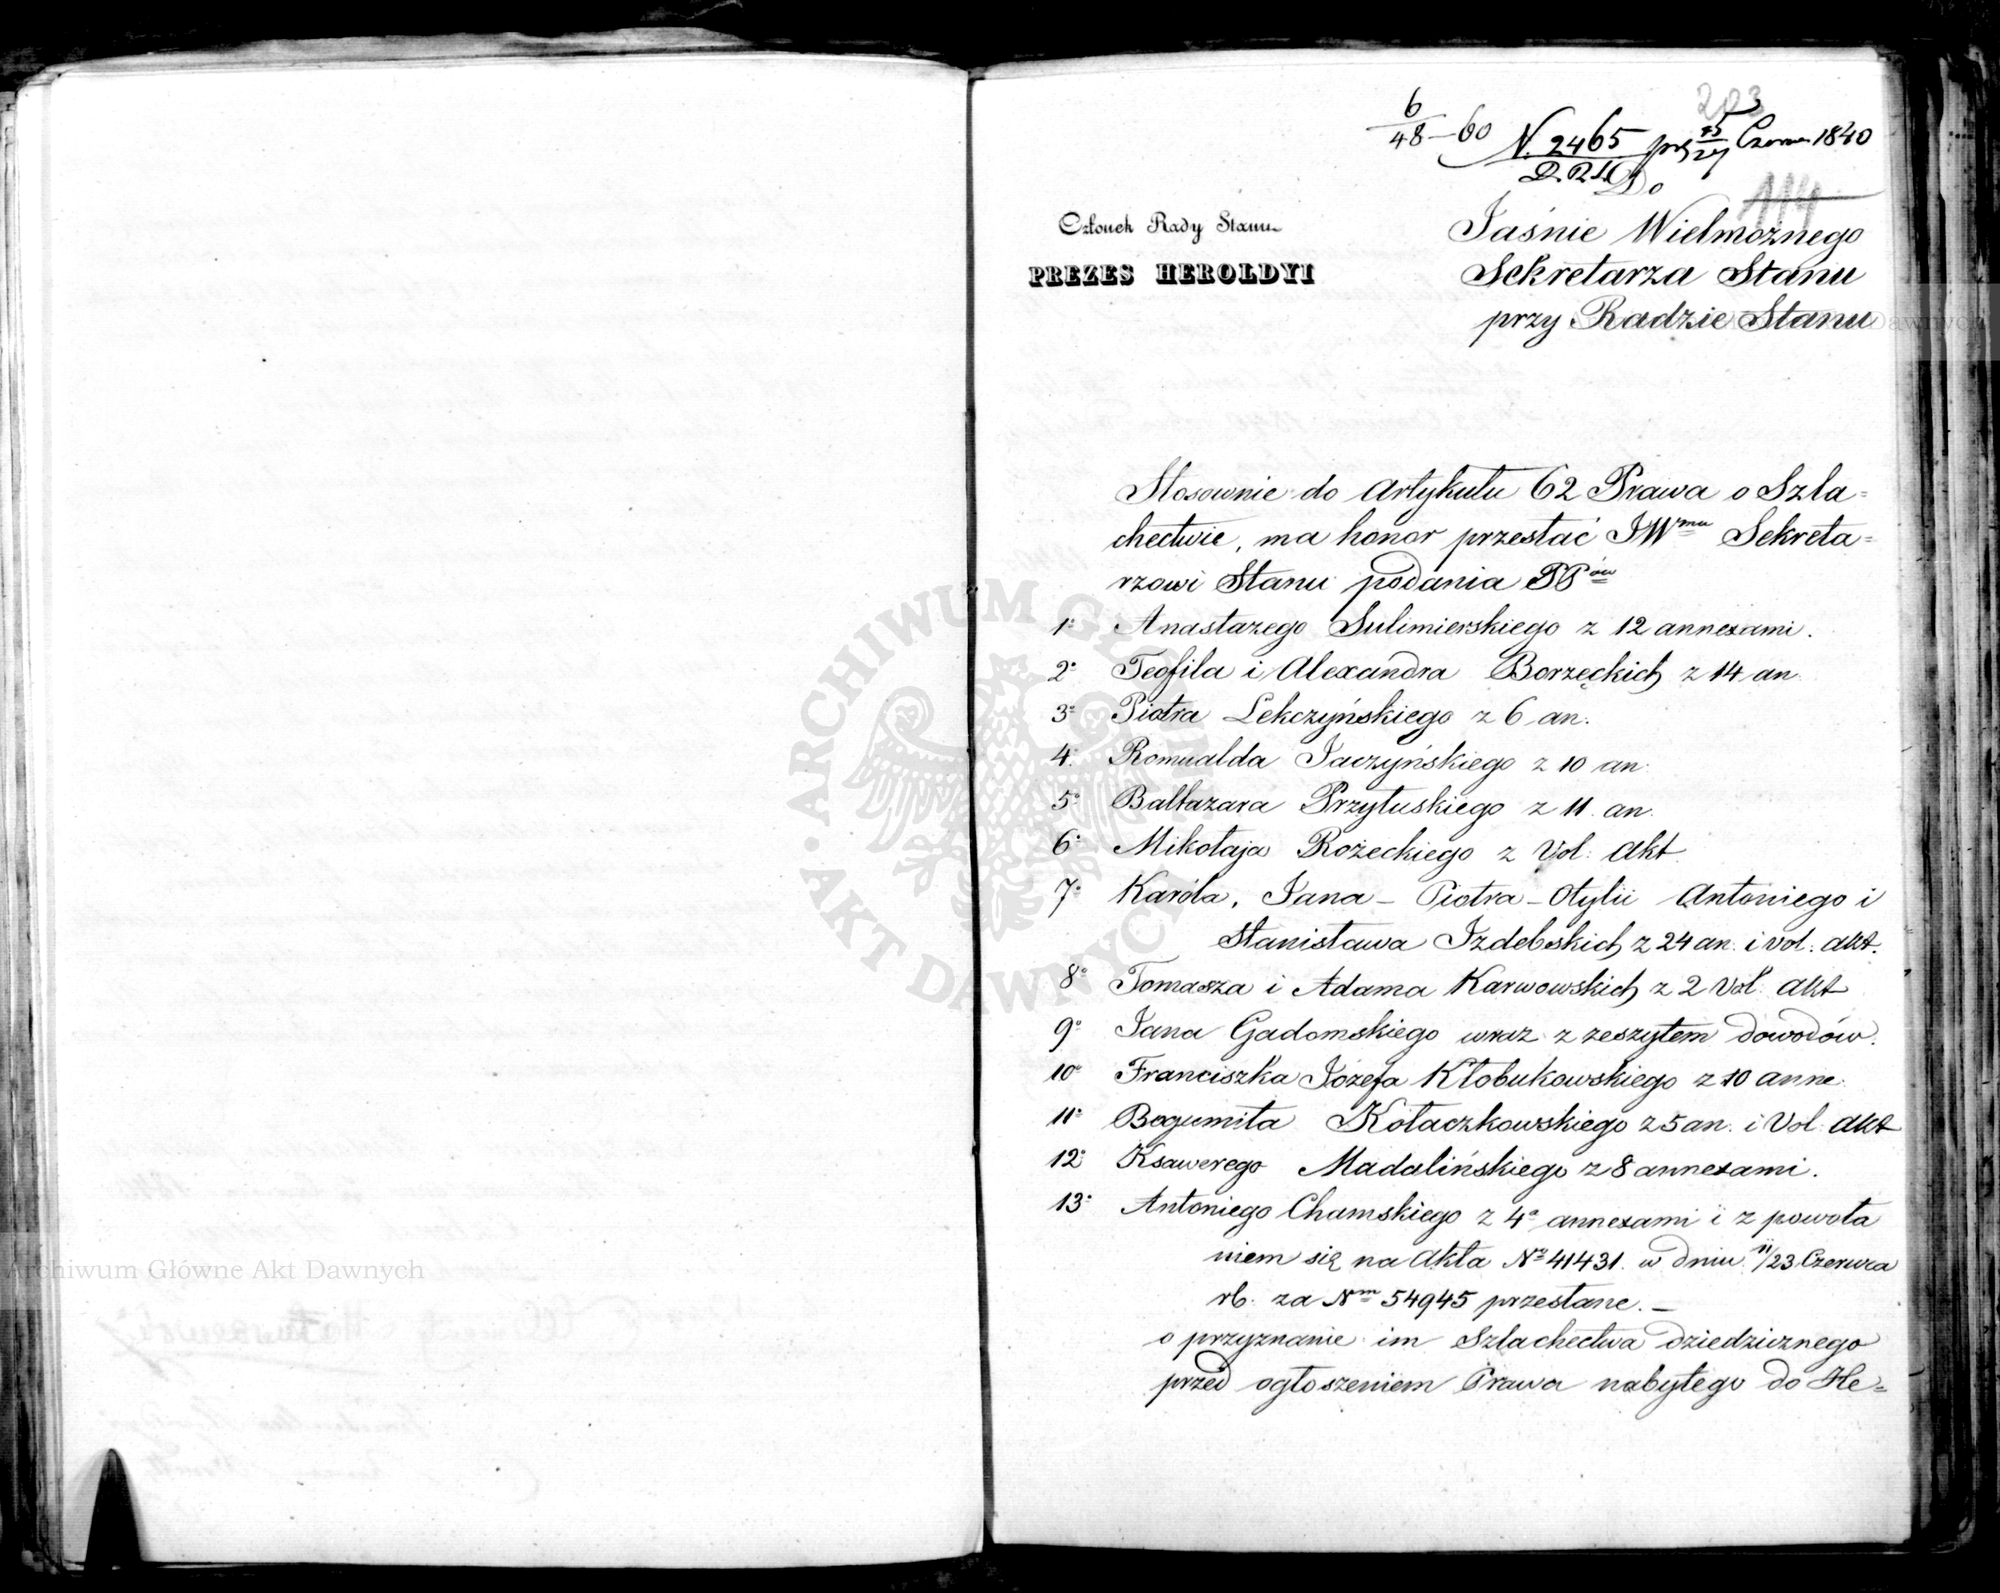 203
6/48–60 N. 2465 prs 15/27 Czerw 1840
D. R. St. Do
114
Członek Rady Stanu
PREZES HEROLDYI
Jaśnie Wielmożnego
Sekretarza Stanu
przy Radzie Stanu
Stosownie do Artykułu 62 Prawa o Szla=
chectwie, ma honor przesłać JWmu Sekreta=
rzowi Stanu podania PPów
1º Anastazego Sulimierskiego z 12 annexami.
2º Teofila i Alexandra Borzęckich z 14 an.
3º Piotra Lekczyńskiego z 6 an.
4. Romualda Jaczyńskiego z 10 an.
5º Baltazara Przyłuskiego z 11. an.
6º Mikołaja Rożeckiego z Vol: Akt.
7º Karóla, Jana – Piotra – Otylii Antoniego i
Stanisława Izdebskich z 24 an. i vol. akt.
8º Tomasza i Adama Karwowskich z 2 Vol. Akt
9º Jana Gadomskiego wraz z zeszytem dowodów.
10º Franciszka Józefa Kłobukowskiego z 10 anne.
11º Bogumiła Kołaczkowskiego z 5 an. i Vol. Akt
12º Ksawerego Madalińskiego z 8 annexami.
13º Antoniego Chamskiego z 4º annexami i z powoła
niem się na Akta Nº 41431. w dniu 11/23 Czerwca
rb. za Nm 54945 przesłane. –
o przyznanie im Szlachectwa dziedzicznego
przed ogłoszeniem Prawa nabytego do He=
ARCHIWUM GŁÓWNE AKT DAWNYCH
Archiwum Główne Akt Dawnych